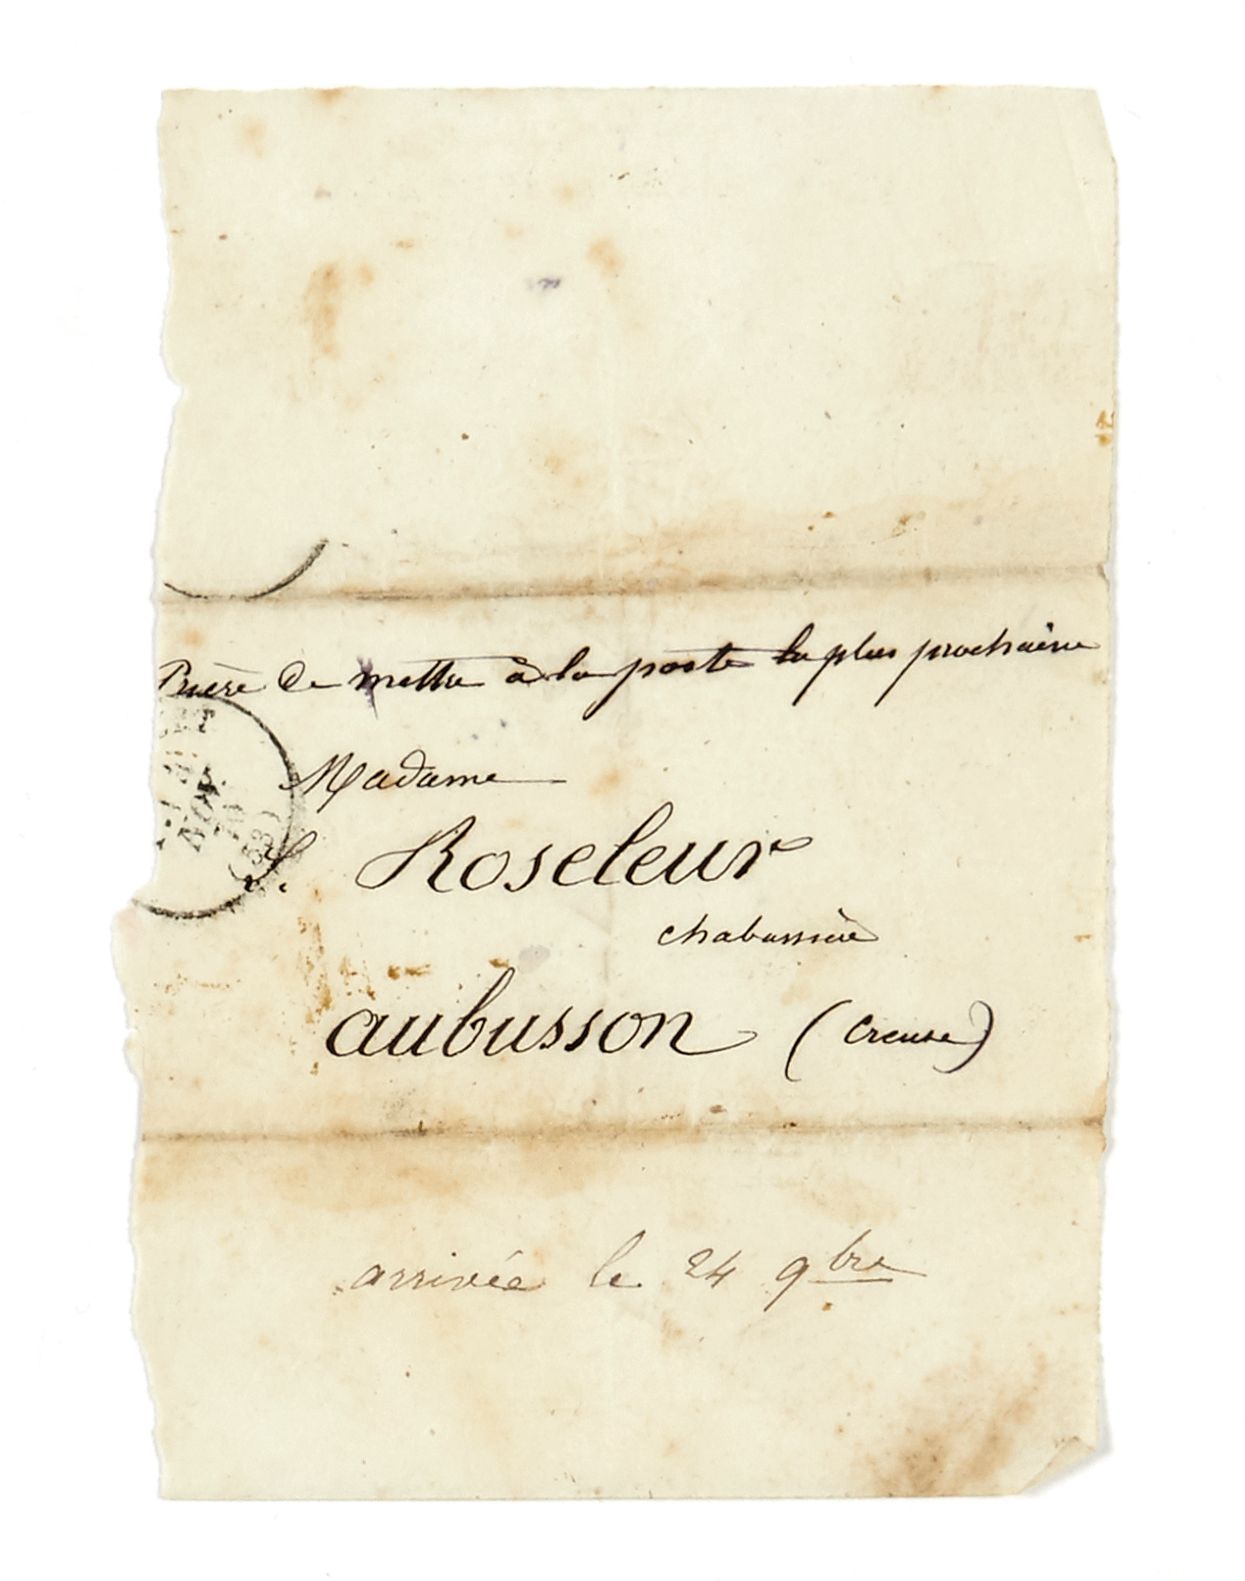 Prière de mettre à la poste la plus prochaine
Madame
L. Roseleur
chabassière
aubusson (creuse)
NOV.
(53)
arrivée le 24 9bre